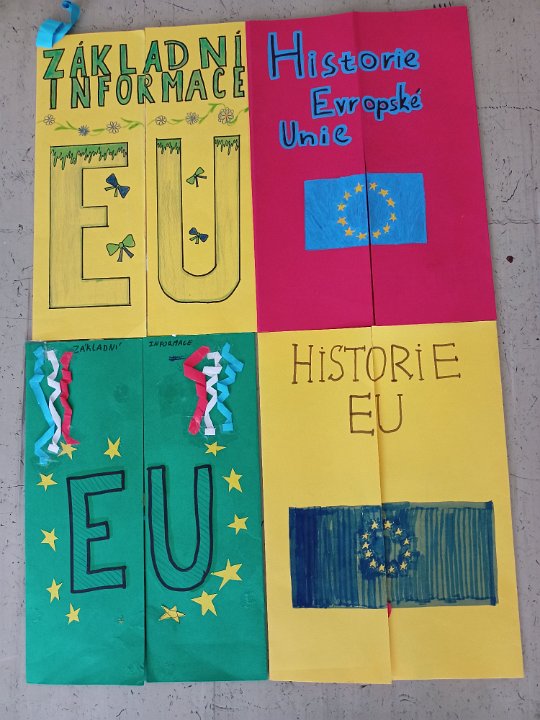 ZÁKLADNÍ
INFORMACE
EU
Historie
Evropské
Unie
ZÁKLADNÍ INFORMACE
EU
HISTORIE
EU